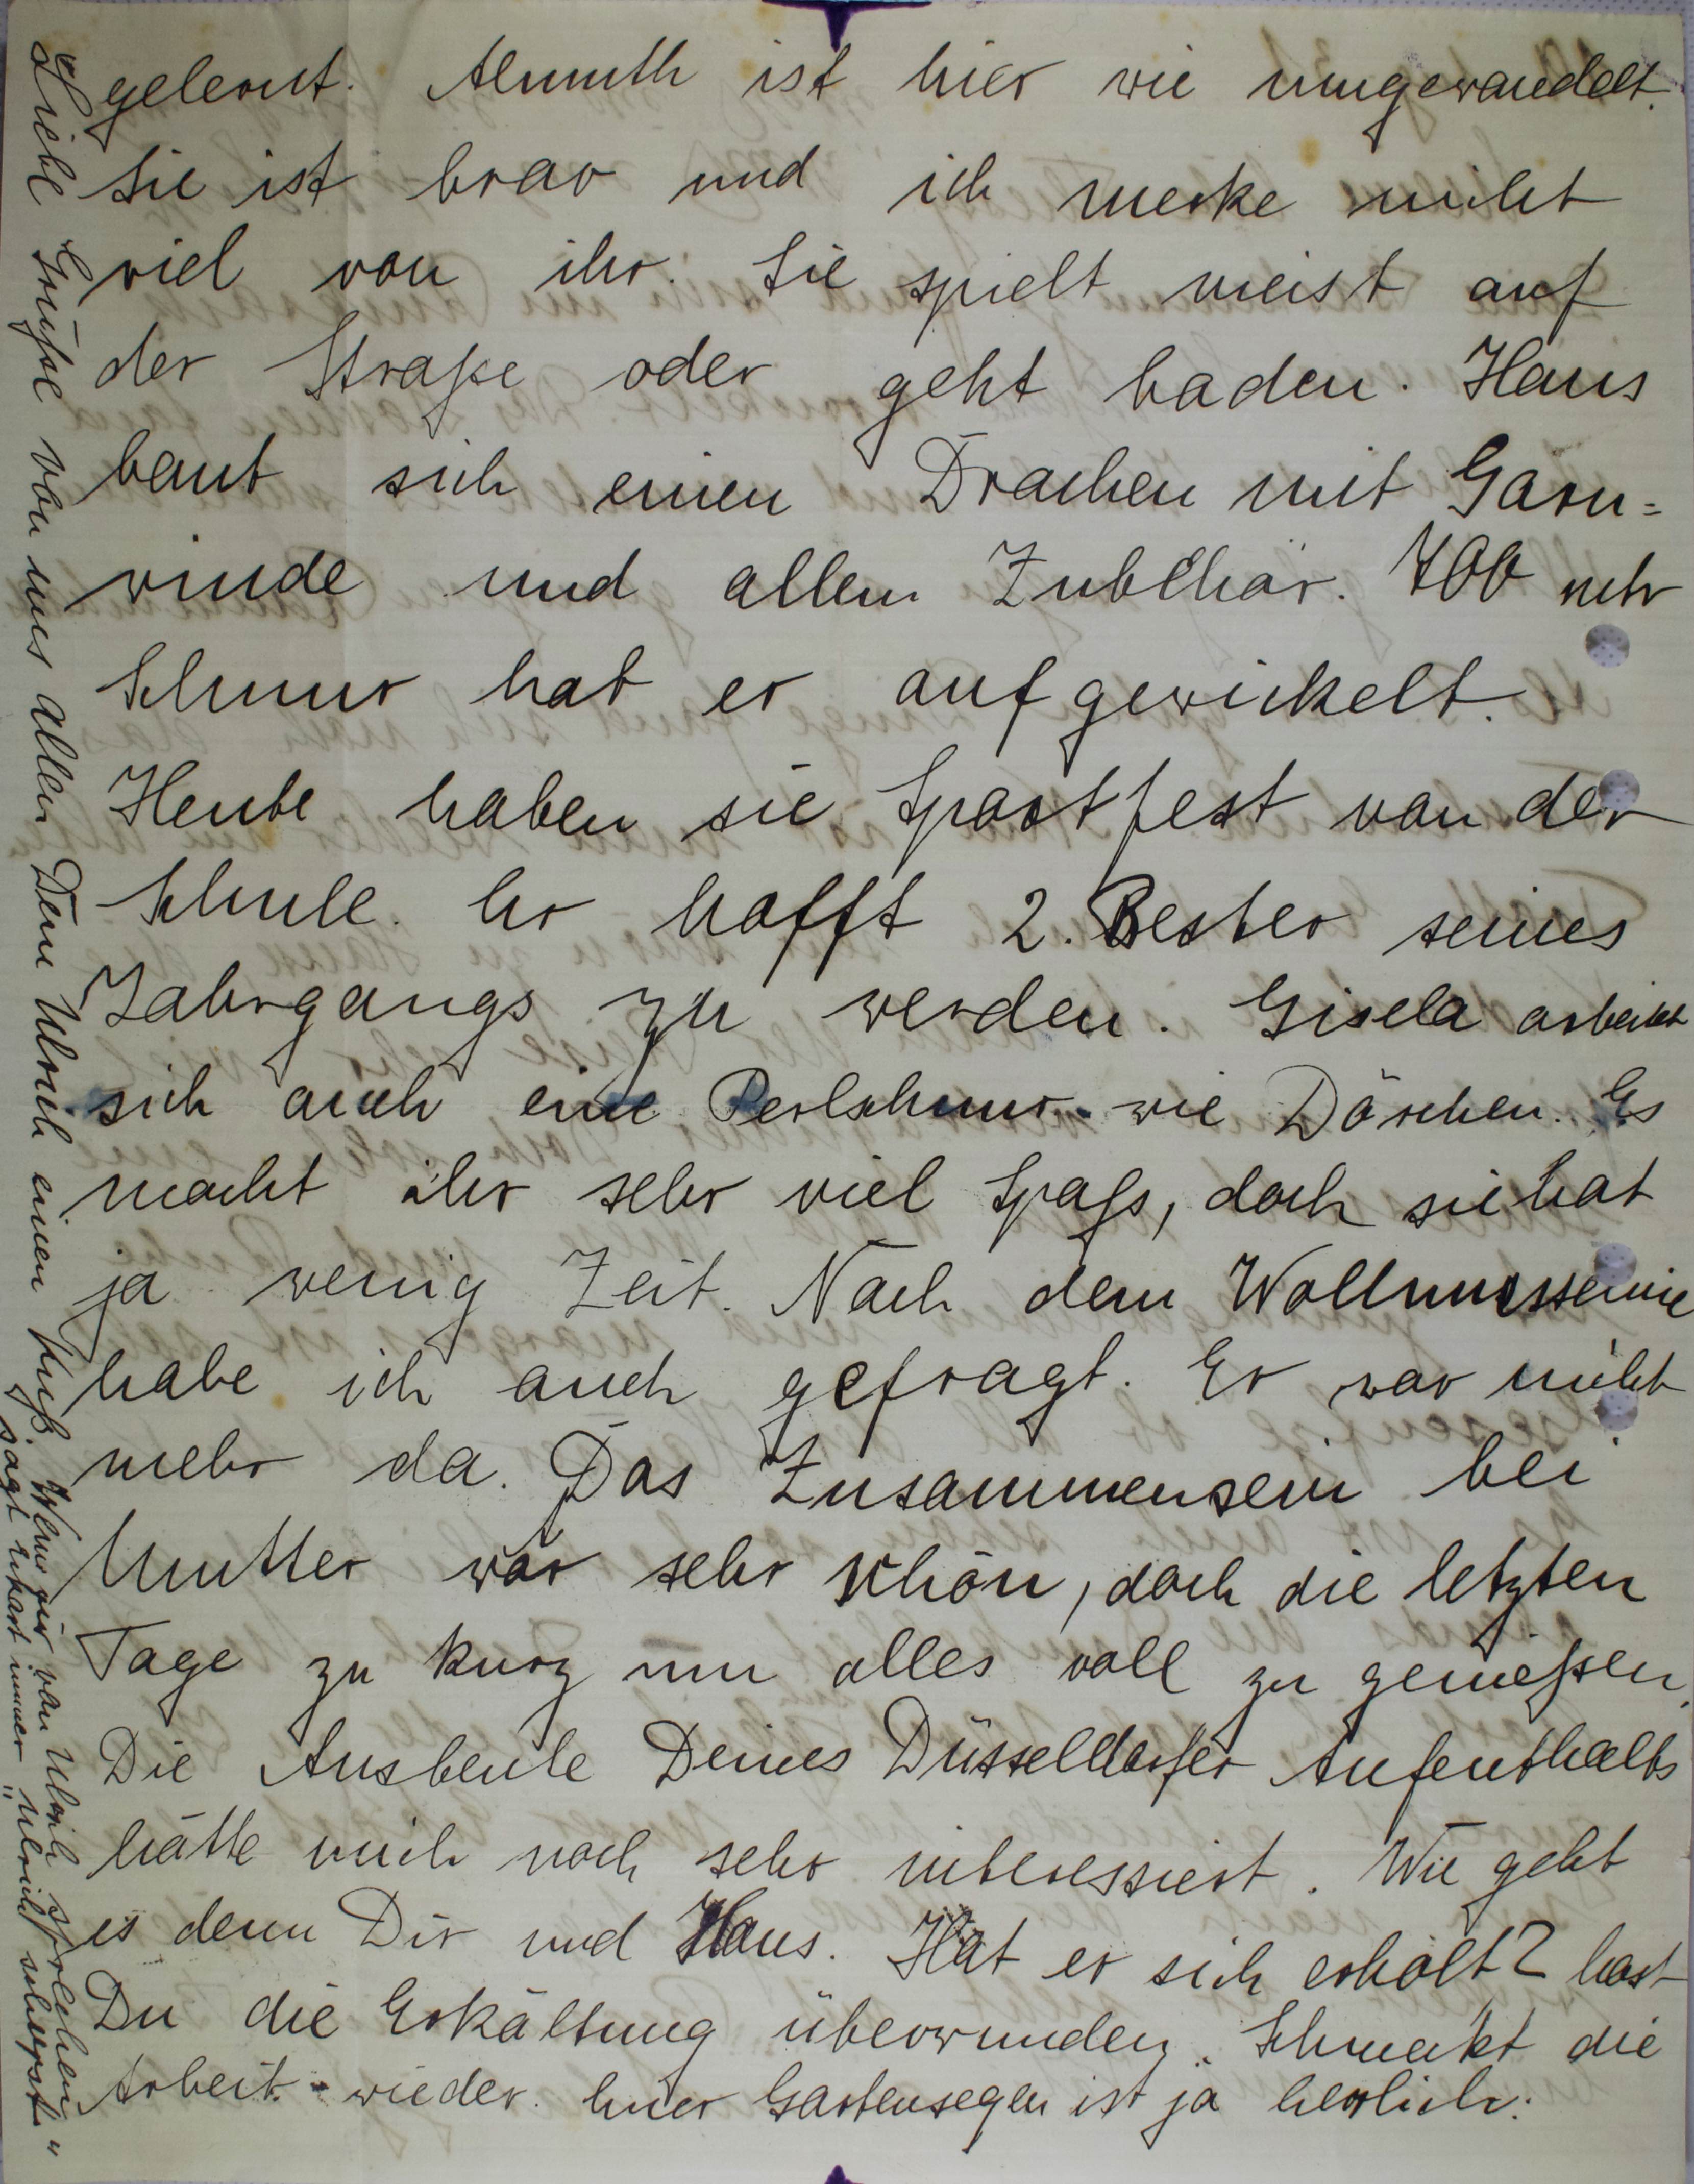 gelernt. Almuth ist hier wie umgewandelt.
Sie ist brav und ich merke nicht
viel von ihr. Sie spielt meist auf
der Straße oder geht baden. Hans
baut sich einen Drachen mit Garn=
winde und allem Zubehör. 700 mtr
Schnur hat er aufgewickelt.
Heute haben sie Sportfest von der
Schule. Er hofft 2. Bester seines
Jahrgangs zu werden. Gisela arbeitet
sich auch eine Perlschnur wie Dörchen. Es
macht ihr sehr viel Spaß, doch sie hat
ja wenig Zeit. Nach dem
habe ich auch gefragt. Er war nicht
mehr da. Das Zusammensein bei
Mutter war sehr schön, doch die letzten
Tage zu kurz um alles voll zu genießen.
Die Ausbeute Deines Düsseldorfer Aufenthalts
hätte mich noch sehr interessiert. Wie geht
es denn Dir und Hans. Hat er sich erholt? hast
Du die Erkältung überwunden. Schmeckt die
Arbeit wieder. Euer Gartensegen ist ja herrlich.
Liebe Grüße von uns allen Dem Ulrich einen Kuß. Wenn wir von Ulrich sprechen
sagt immer "Ulrich